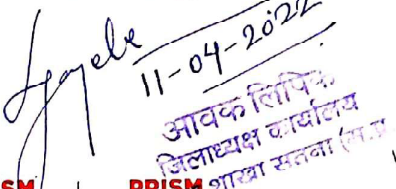 11-04-2022
आवक लिपिक
जिलाध्यक्ष कार्यालय
शाखा सतना (म.प्र.
SM PRISM